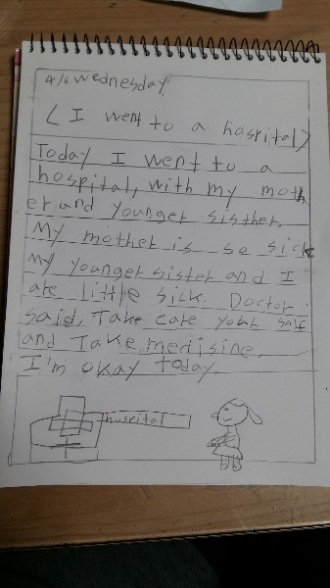 4/6 wednesday
< I went to a hospital>
Today I went to a
hospital, with my moth
er and younger sisther.
My mother is so sick
my younger sister and I
are little sick. Doctor
said, Take care your salf
and Take medisine.
I'm okay today.
huspital